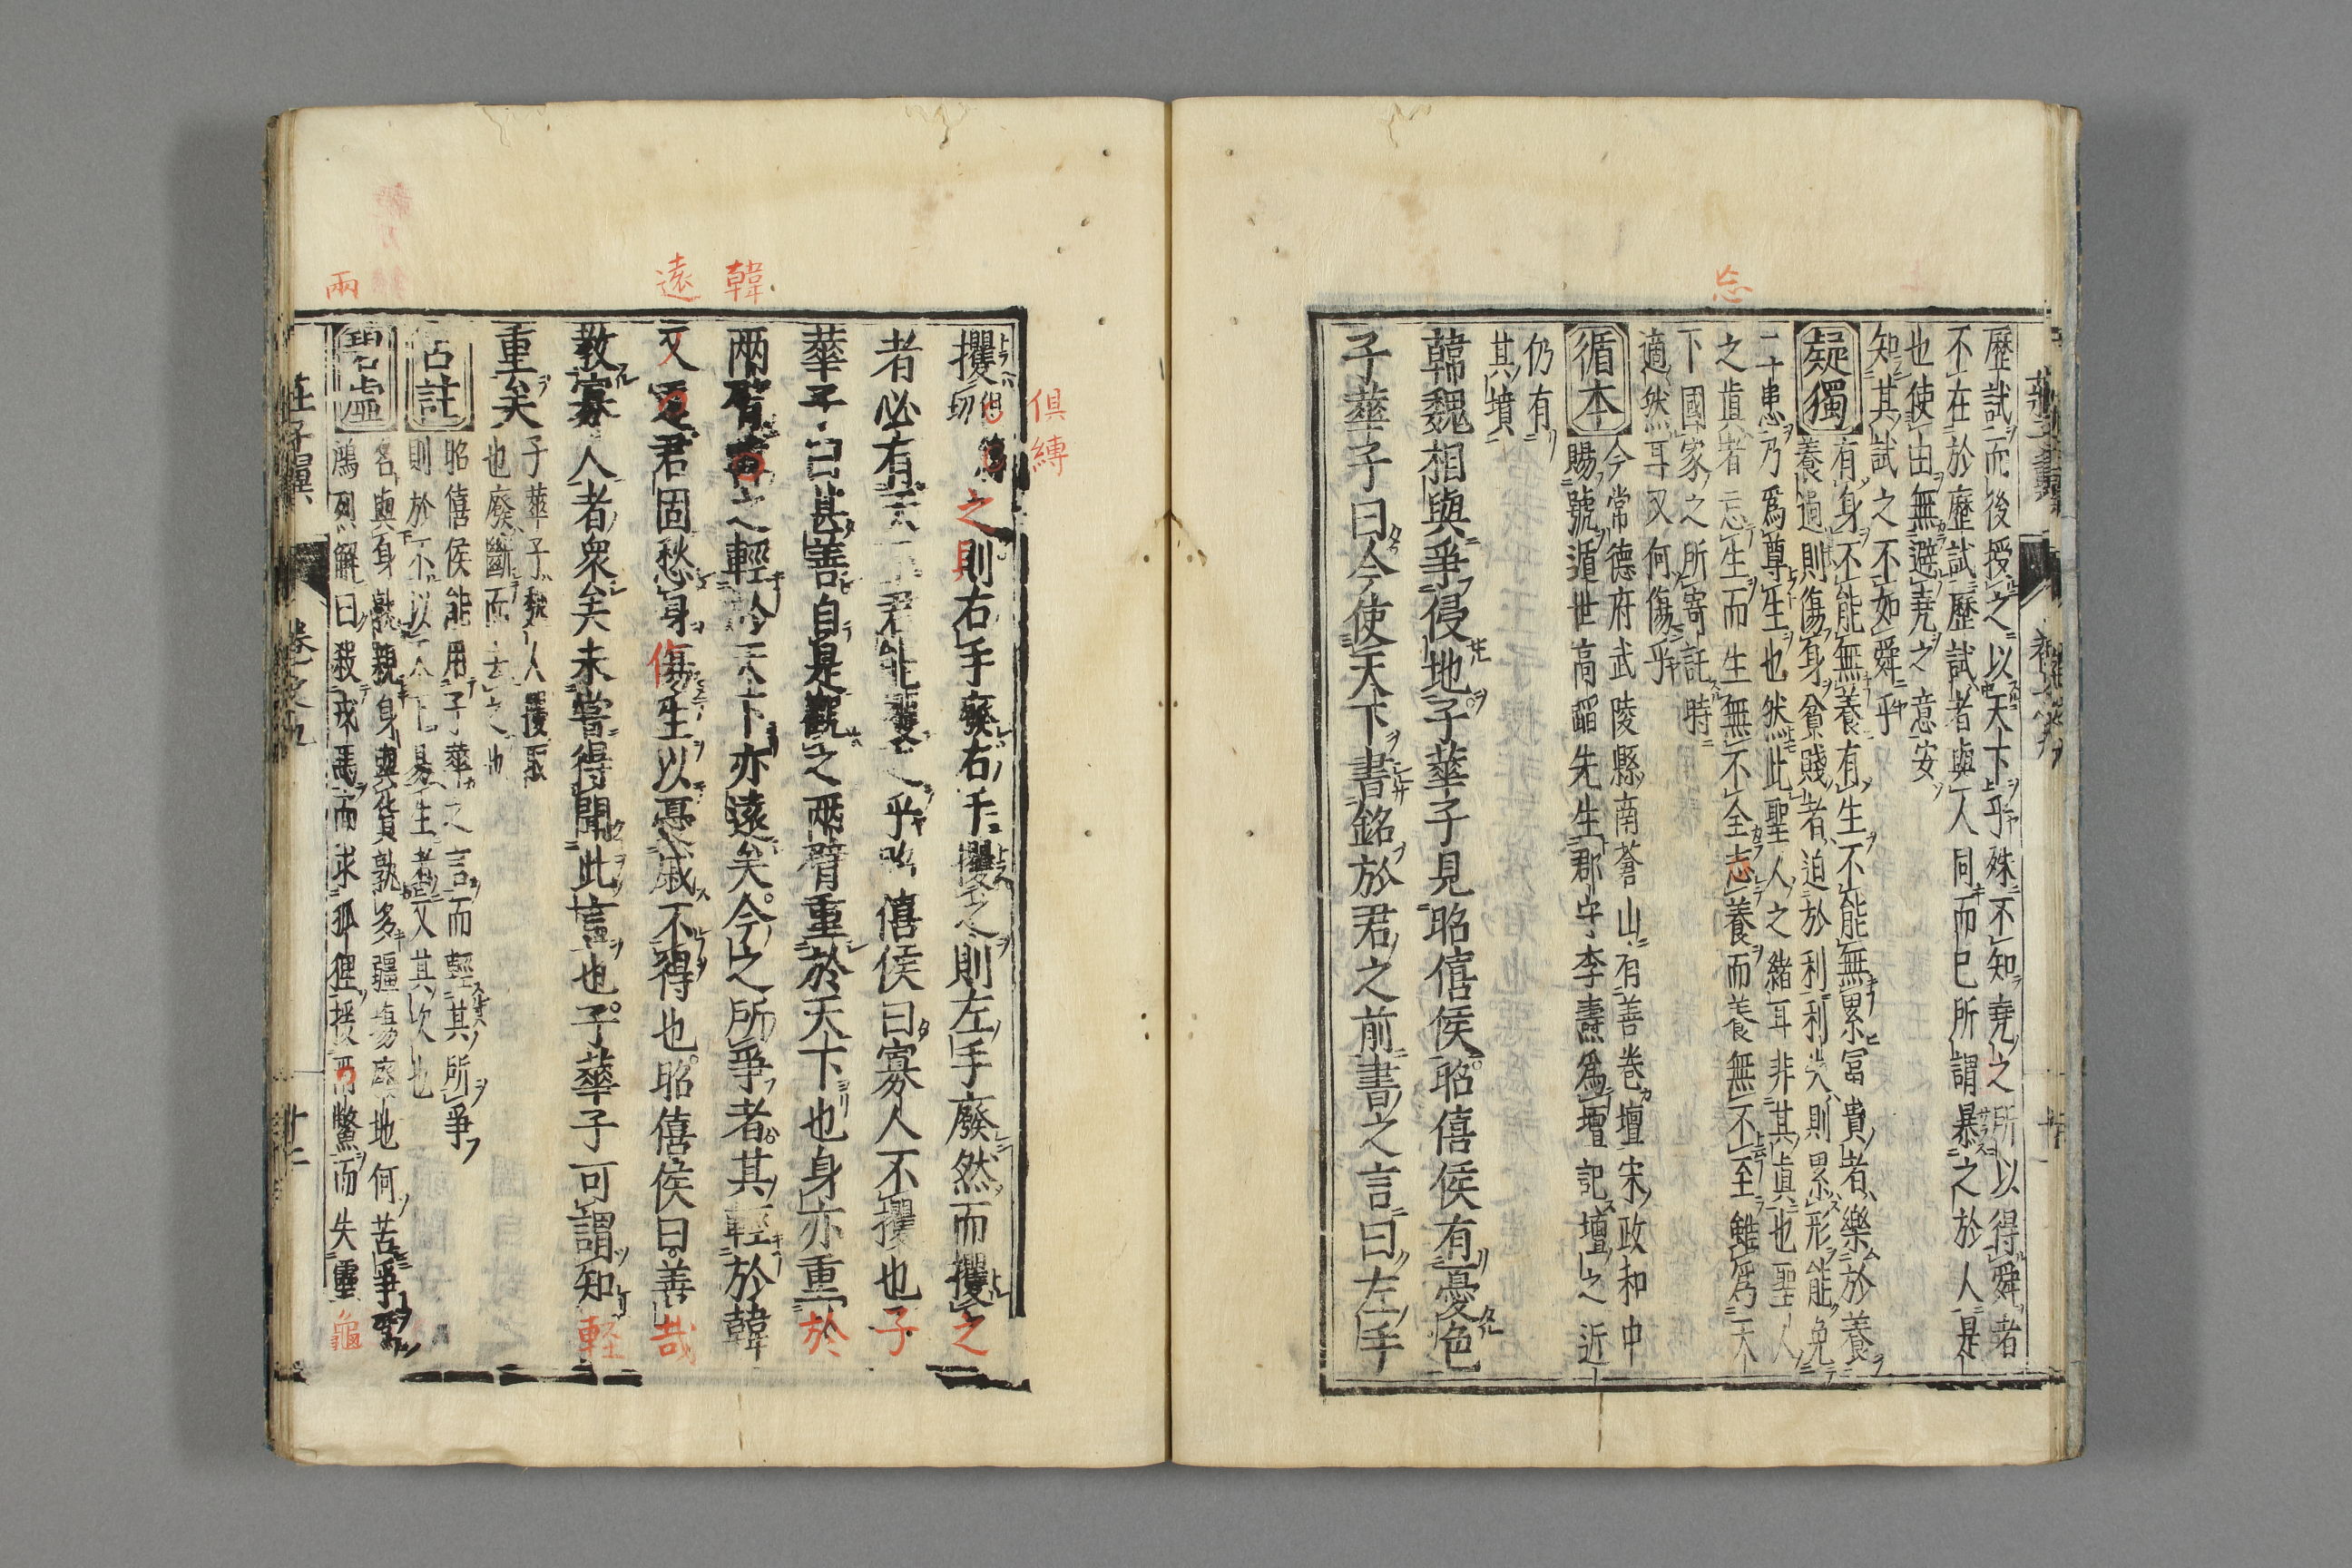 歷試而後授之以天下乎殊不知堯之所以得舜者
不在於歷試歷試者與人同而已所謂暴之於人是
也使由無避堯之意安
知其試之不如舜乎
疑獨
有身不能無養有生不能無累冨貴者樂於養
養過則傷身貧賤者迫於利利失則累形能免
二十患乃爲尊生也然此聖人之緒耳非其眞也聖人
之眞者忘生而生無不全志養而養無不至雖爲天
下國家之所寄託時
適然耳又何傷乎
循本
今常德府武陵縣南蒼山有善卷壇宋政和中
賜號遁世高蹈先生郡守李壽爲壇記壇之近
仍有
其墳
韓魏相與爭侵地子華子見昭僖侯昭僖侯有憂色
子華子曰今使天下書銘於君之前書之言曰左手
忘
俱縛
攫之則右手廢右手攫之則左手廢然而攫之
者必有天下君能攫之乎昭僖侯曰寡人不攫也子
華子曰甚善自是觀之兩臂重於天下也身亦重於
兩臂韓之輕於天下亦遠矣今之所爭者其輕於韓
又遠君固愁身傷生以憂戚不得也昭僖侯曰善哉
教寡人者衆矣未嘗得聞此言也子華子可謂知輕
重矣
子華子魏人攫取
也廢斷而去之也
古註
昭僖侯能用子華之言而輕其所爭
則於不以天下易生者又其次也
碧虛
名與身孰親身與貨孰多疆場廢地何苦爭
鴻烈解曰殺戎馬而求狐狸援兩鱉而失靈龜
韓
遠
兩
莊子翼
卷之九
十二